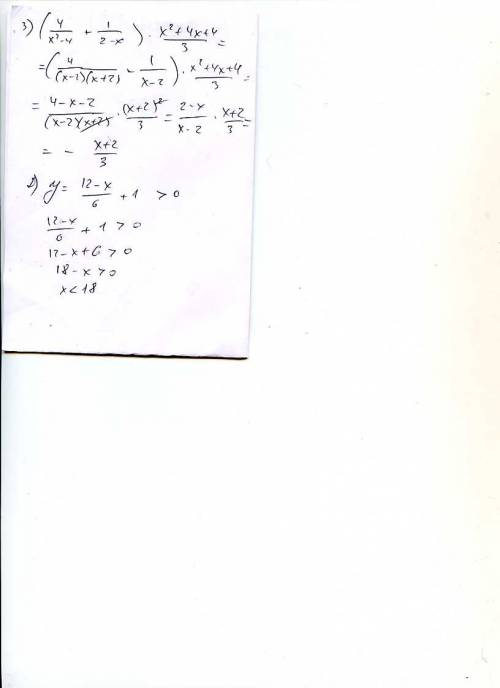 3) (4/(x²-4) + 1/(2-x)) · (x²+4x+4)/3 =
= (4/((x-2)(x+2)) - 1/(x-2)) · (x²+4x+4)/3 =
= (4-x-2)/((x-2)(x+2)) · (x+2)²/3 = (2-x)/(x-2) · (x+2)/3 =
= - (x+2)/3
2) y = (12-x)/6 + 1 > 0
(12-x)/6 + 1 > 0
12-x+6 > 0
18-x > 0
x < 18